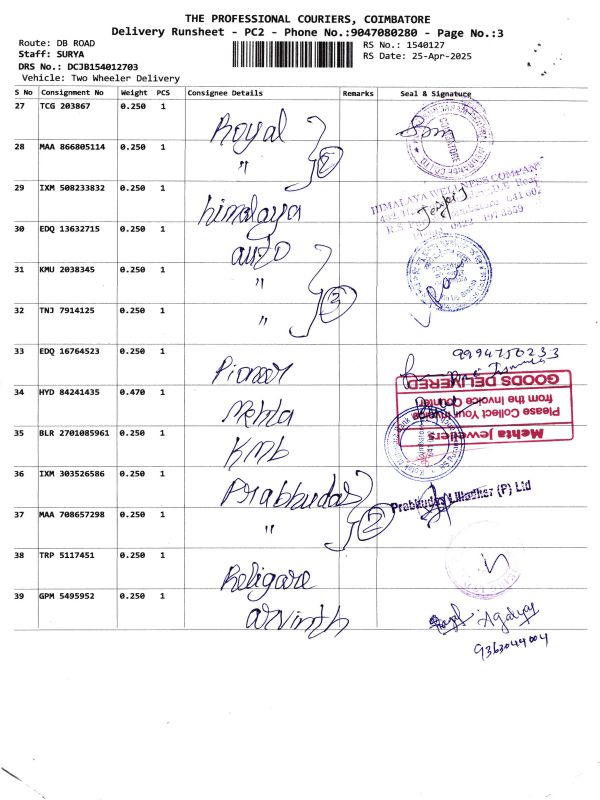 THE PROFESSIONAL COURIERS, COIMBATORE
Delivery Runsheet - PC2 - Phone No.:9047080280 - Page No.:3
Route: DB ROAD
RS No.: 1540127
Staff: SURYA
RS Date: 25-Apr-2025
DRS No.: DCJB154012703
Vehicle: Two Wheeler Delivery
S No Consignment No Weight PCS Consignee Details Remarks Seal & Signature
27 TCG 203867 0.250 1 Royal
28 MAA 866805114 0.250 1 "
29 IXM 508233832 0.250 1 himalaya
HIMALAYA WELLNESS COMPANY
30 EDQ 13632715 0.250 1 auzo
31 KMU 2038345 0.250 1 "
3
32 TNJ 7914125 0.250 1 "
33 EDQ 16764523 0.250 1 Pioneer
9994750233
34 HYD 84241435 0.470 1 Mehta
GOODS DELIVERED
from the Invoice Counter
Please Collect Your
Mehta jewellers
35 BLR 2701085961 0.250 1 KMB
36 IXM 303526586 0.250 1 Prabhudas
Prabhudas Lilladher (P) Ltd
37 MAA 708657298 0.250 1 "
2
38 TRP 5117451 0.250 1 Religare
39 GPM 5495952 0.250 1 arvinth
Agalya
9363044004